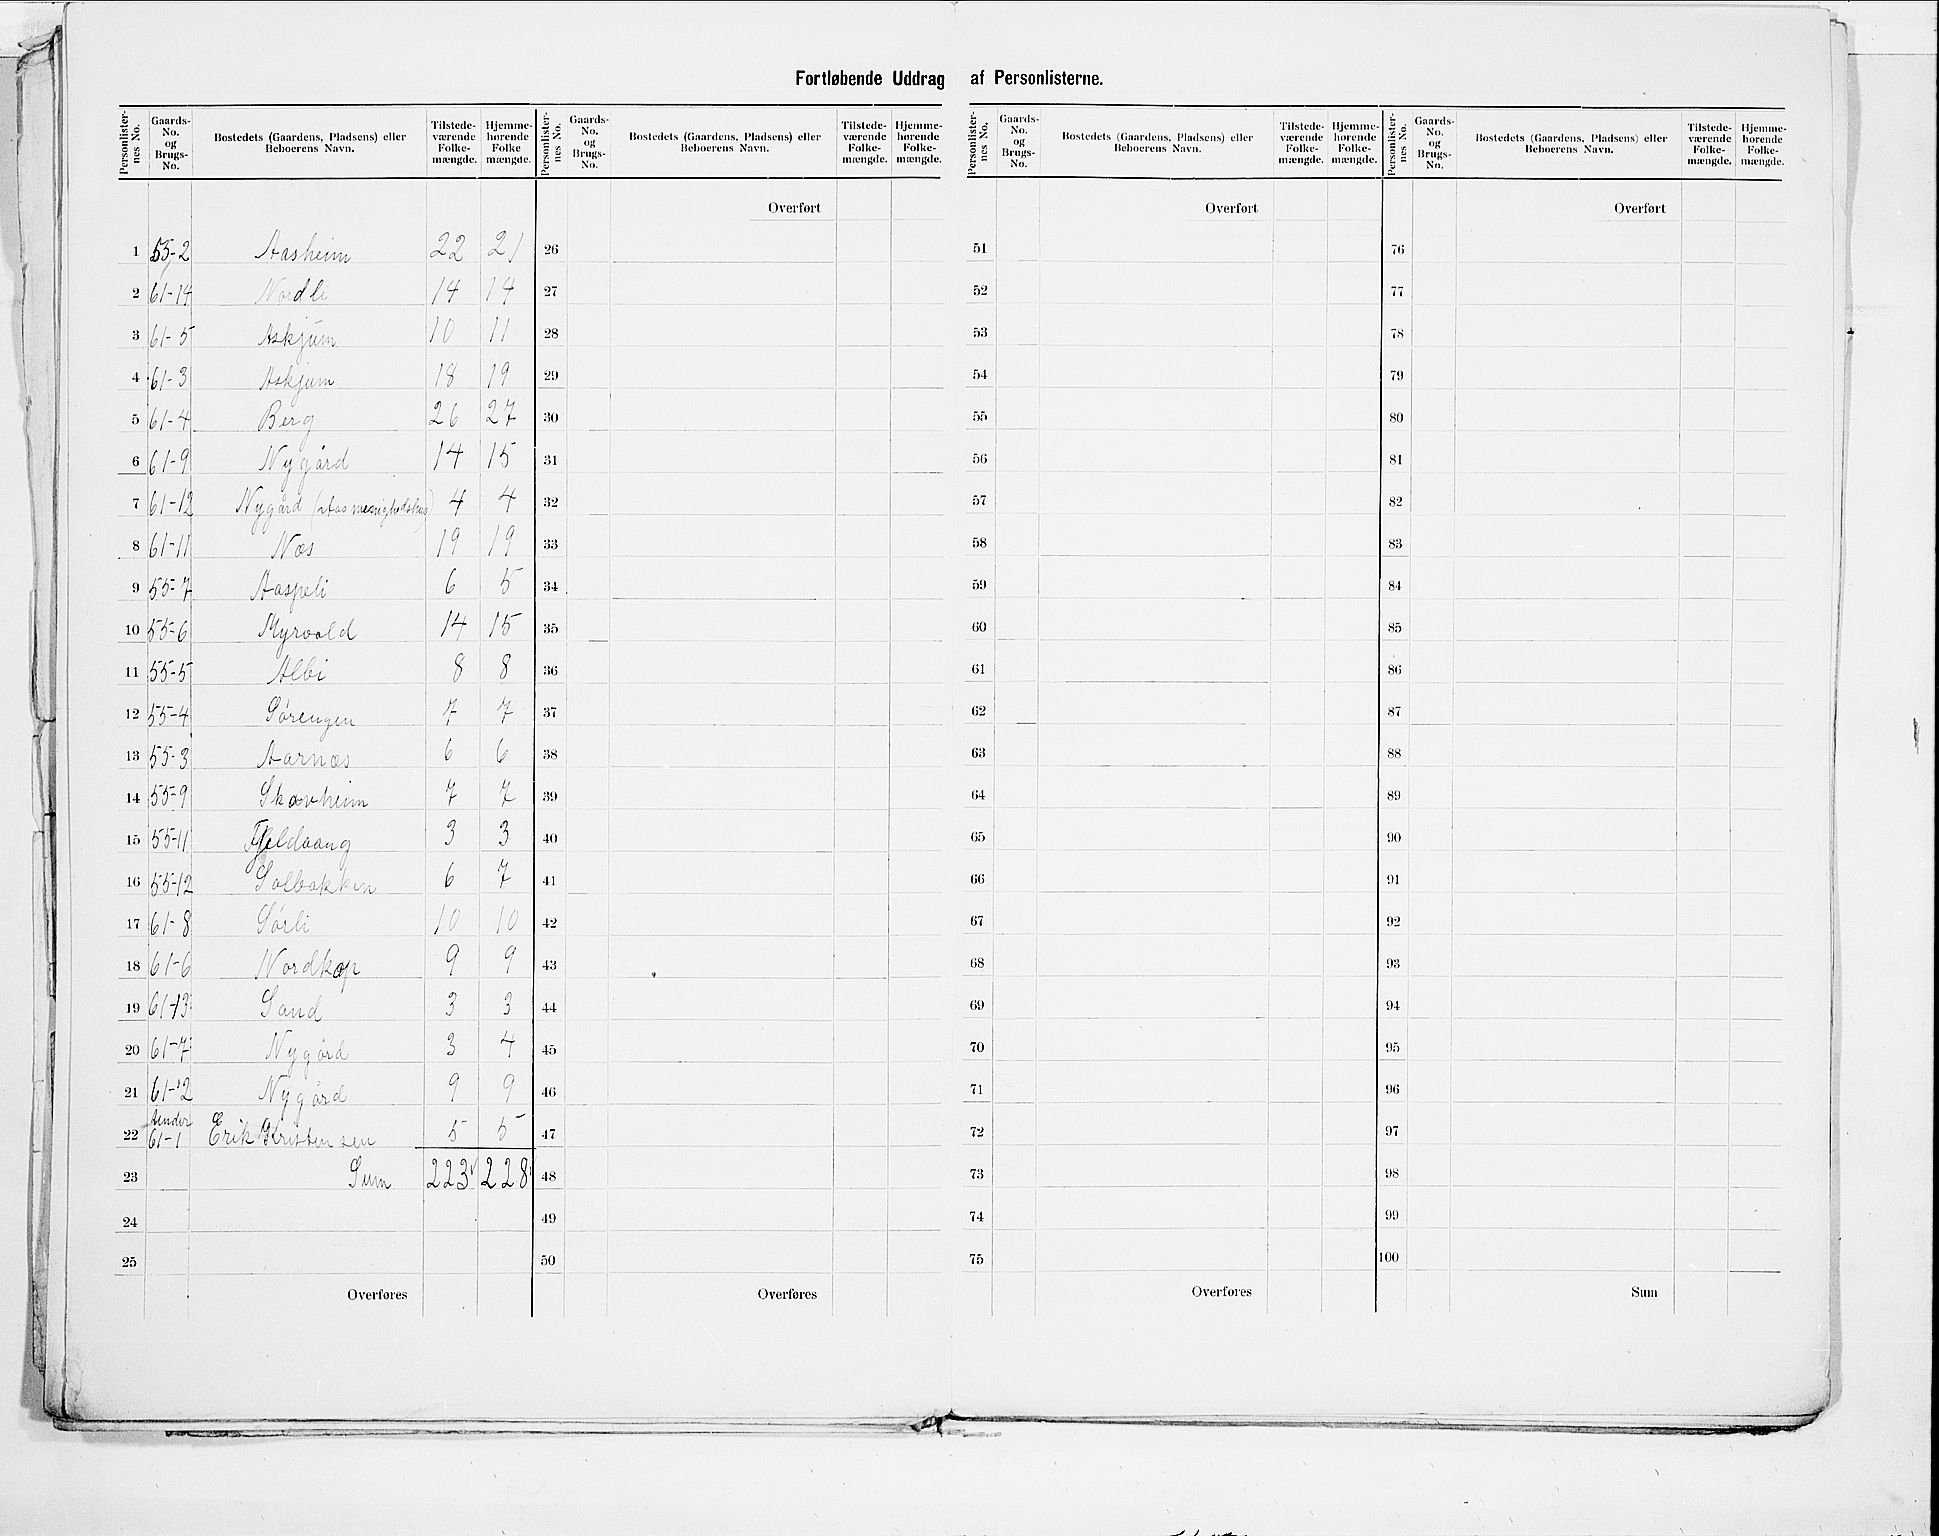 Fortløbende Uddrag af Personlisterne.
Personlister-nes No. Gaards-No. og Brugs-No. Bostedets (Gaardens, Pladsens) eller Beboerens Navn. Tilstede-værende Folke-mængde. Hjemme-hørende Folke mængde.
1 55-2 Aasheim 22 21
2 61-14 Nordli 14 14
3 61-5 Askjum 10 11
4 61-3 Askjum 18 19
5 61-4 Berg 26 27
6 61-9 Nygård 14 15
7 61-12 Nygård 4 4
8 61-11 Næs 19 19
9 55-7 Aaspeli 6 5
10 55-6 Myrvold 14 15
11 55-5 Albi 8 8
12 55-4 Sørengen 7 7
13 55-3 Aarnæs 6 6
14 55-9 Skovheim 7 7
15 55-11 3 3
16 55-12 Solbakken 6 7
17 61-8 Sørli 10 10
18 61-6 Nordkap 9 9
19 61-13 Sand 3 3
20 61-7 Nygård 3 4
21 61-2 Nygård 9 9
22 under 61-1 Erik Kristensen 5 5
23 Sum 223 228
24
25
Overføres
Personlister-nes No. Gaards-No. og Brugs-No. Bostedets (Gaardens, Pladsens) eller Beboerens Navn. Tilstede-værende Folke-mængde. Hjemme-hørende Folke-mængde.
Overført
26
27
28
29
30
31
32
33
34
35
36
37
38
39
40
41
42
43
44
45
46
47
48
49
50
Overføres
Personlister-nes No. Gaards-No. og Brugs-No. Bostedets (Gaardens, Pladsens) eller Beboerens Navn. Tilstede-værende Folke-mængde. Hjemme-hørende Folke-mængde.
Overført
51
52
53
54
55
56
57
58
59
60
61
62
63
64
65
66
67
68
69
70
71
72
73
74
75
Overføres
Personlister-nes No. Gaards-No. og Brugs-No. Bostedets (Gaardens, Pladsens) eller Beboerens Navn. Tilstede-værende Folke-mængde. Hjemme-hørende Folke-mængde.
Overført
76
77
78
79
80
81
82
83
84
85
86
87
88
89
90
91
92
93
94
95
96
97
98
99
100
Sum